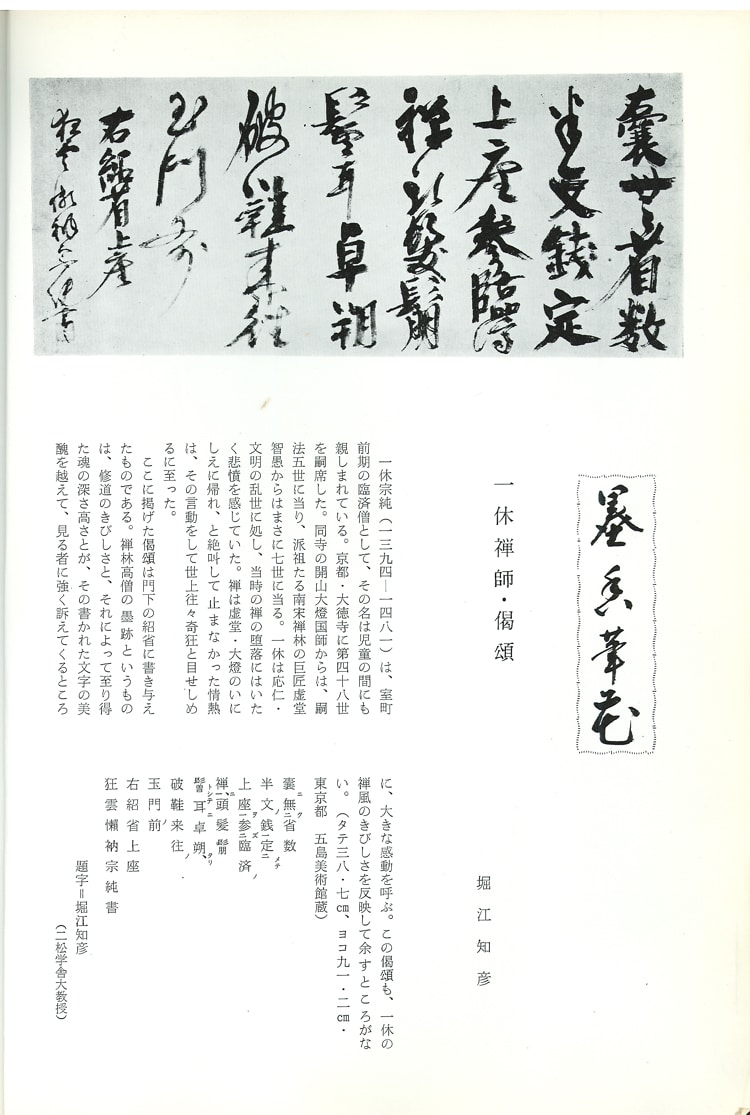 囊無省数
半文銭定
上座参臨済
禅頭髪鬅
鬙耳卓朔
破鞋来往
玉門前
右紹省上座
狂雲懶衲宗純書
墨香筆花
一休禅師・偈頌
堀江知彦
一休宗純(一三九四―一四八一)は、室町
前期の臨済僧として、その名は児童の間にも
親しまれている。京都・大徳寺に第四十八世
を嗣席した。同寺の開山大燈国師からは、嗣
法五世に当り、派祖たる南宋禅林の巨匠虚堂
智愚からはまさに七世に当る。一休は応仁・
文明の乱世に処し、当時の禅の堕落にはいた
く悲憤を感じていた。禅は虚堂・大燈のいに
しえに帰れ、と絶叫して止まなかった情熱
は、その言動をして世上往々奇狂と目せしめ
るに至った。
ここに掲げた偈頌は門下の紹省に書き与え
たものである。禅林高僧の墨跡というもの
は、修道のきびしさと、それによって至り得
た魂の深さ高さとが、その書かれた文字の美
醜を越えて、見る者に強く訴えてくるところ
に、大きな感動を呼ぶ。この偈頌も、一休の
禅風のきびしさを反映して余すところがな
い。(タテ三八・七cm、ヨコ九一・二cm・
東京都 五島美術館蔵)
囊ニ無ク二省数
半文ノ銭一定メテ二
上座ヲ一参ズ二臨済ノ
禅ニ一、頭髪鬅
鬙トシテ耳ニ卓朔タリ、
破鞋来往ノ、
玉門ノ前
右紹省上座
狂雲懶衲宗純書
題字=堀江知彦
(二松学舎大教授)